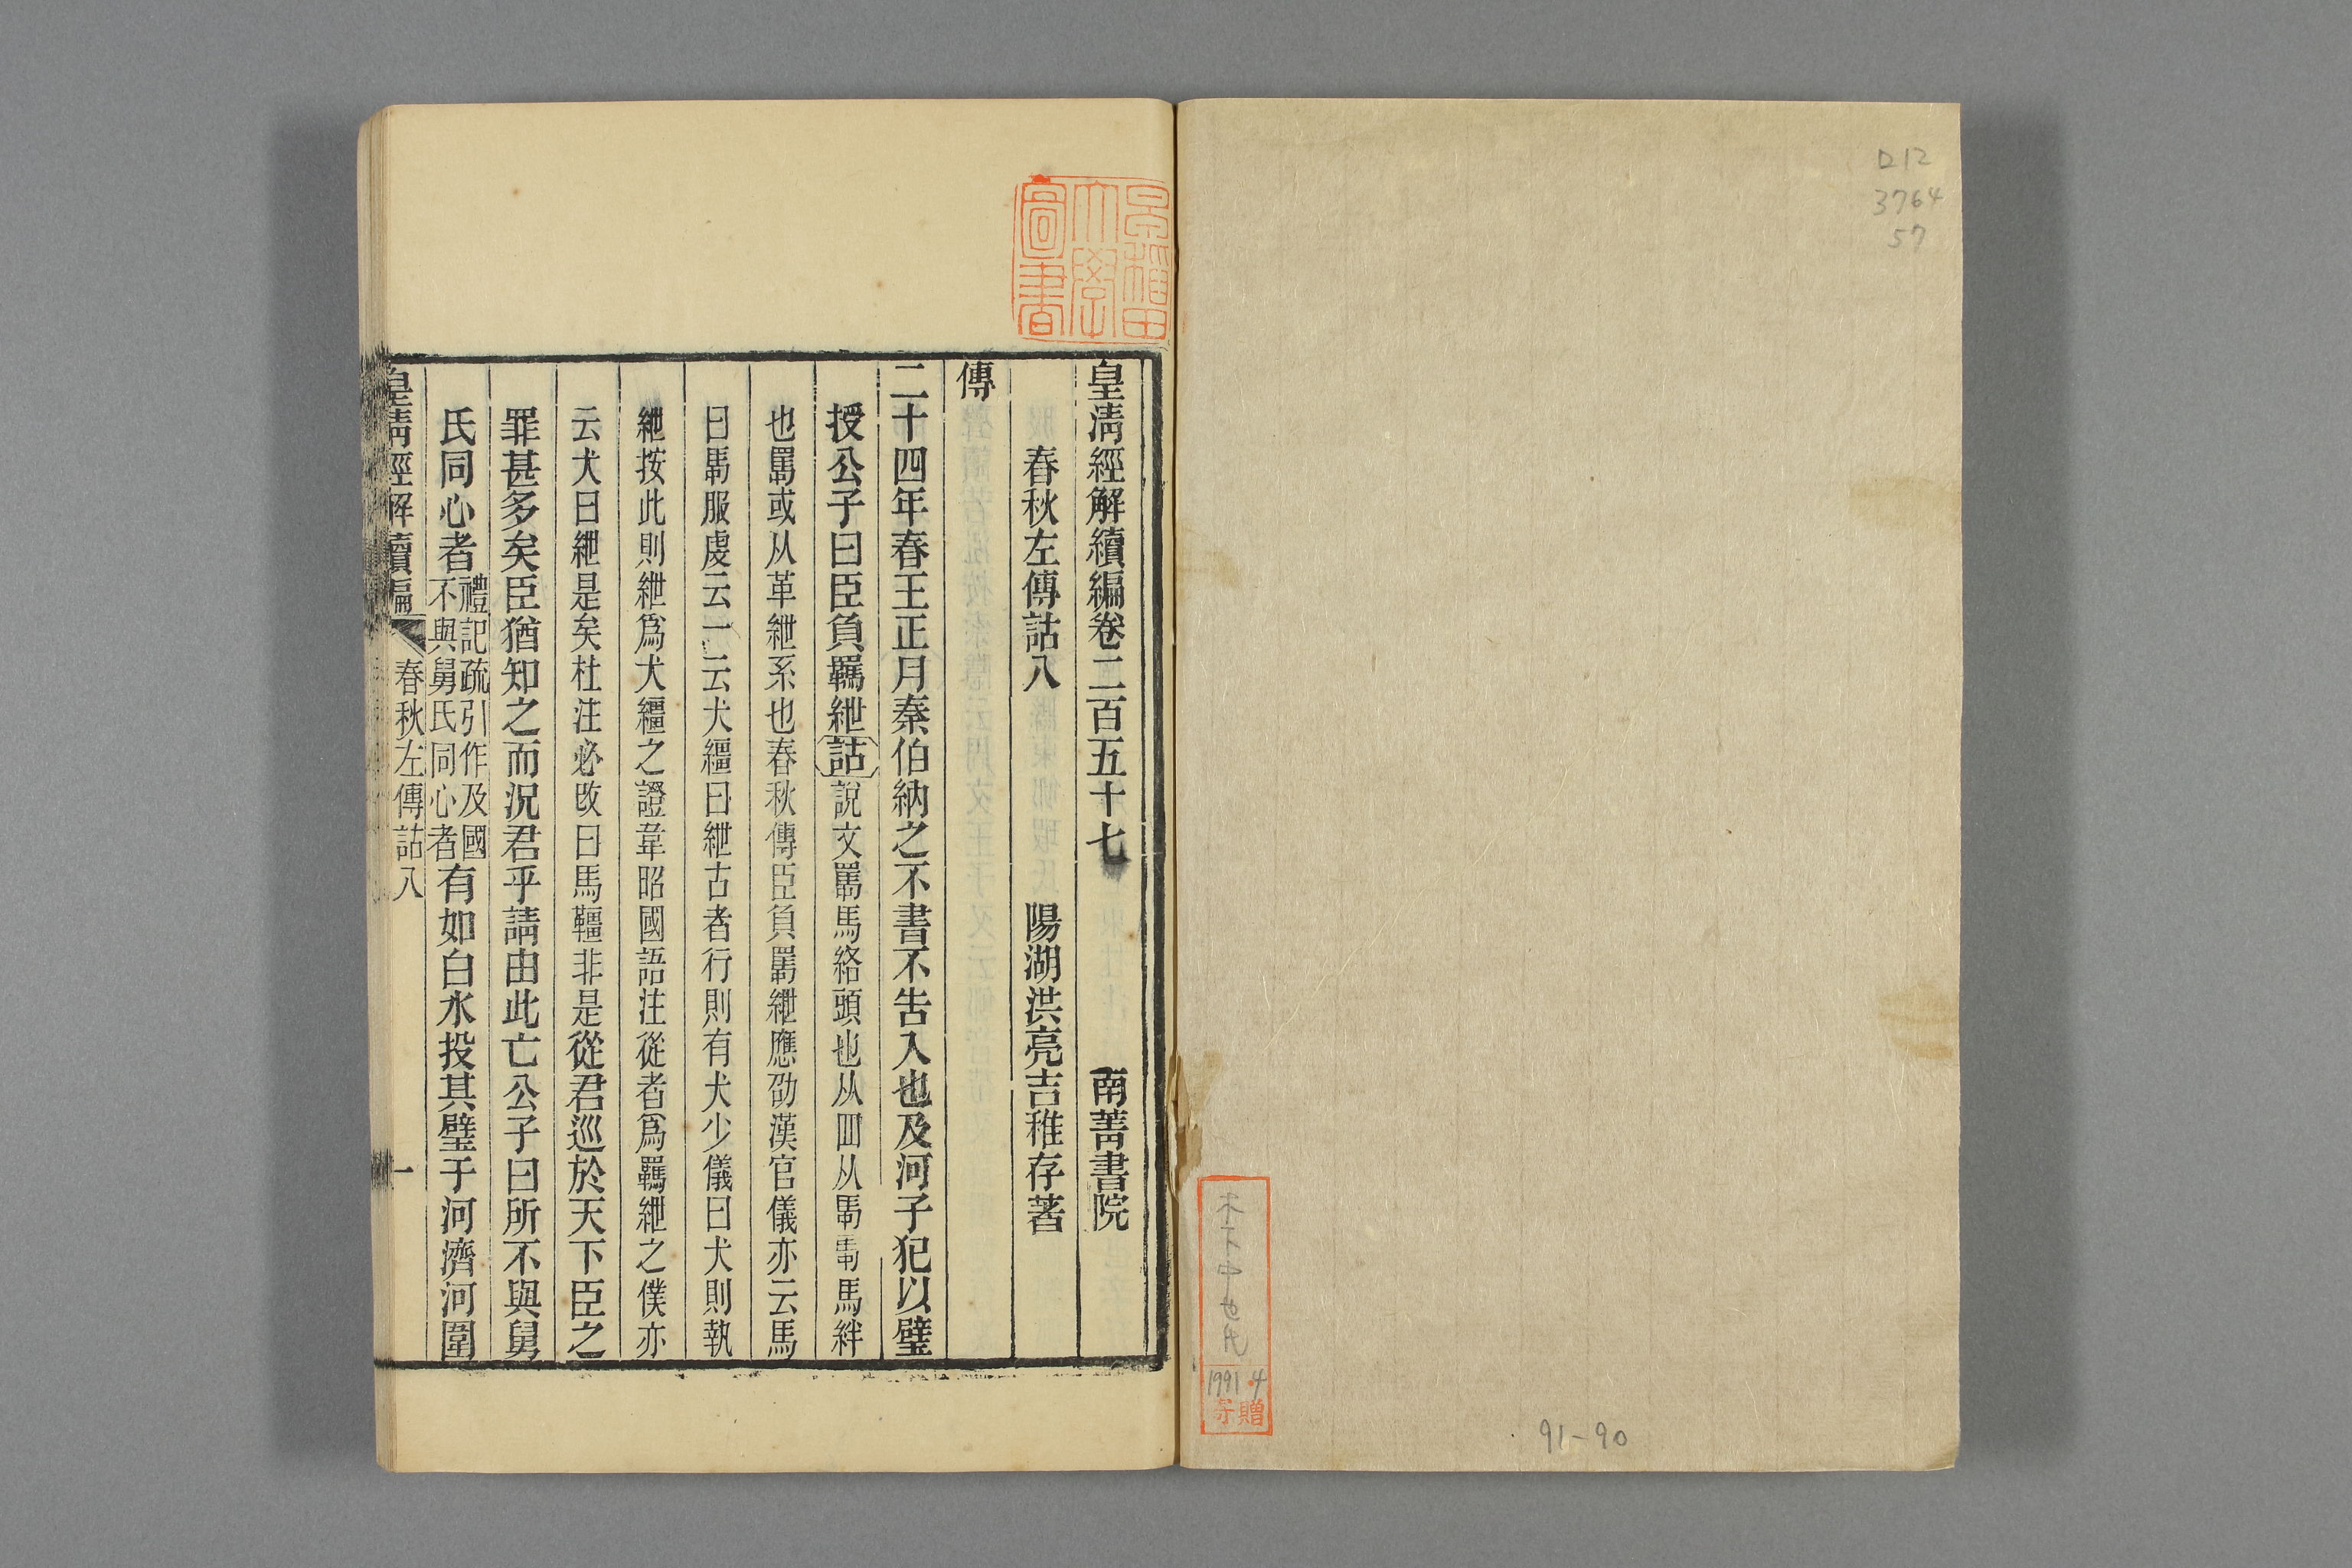 D12
3764
57
1991 4
寄贈
91-90
早稲田
大學
圖書
皇清經解續編卷二百五十七 南菁書院
春秋左傳詁八 陽湖洪亮吉稚存著
傳
二十四年春王正月秦伯納之不書不告入也及河子犯以璧
授公子曰臣負羈紲詁說文羈馬絡頭也从罒从馽馽馬絆
也羈或从革紲系也春秋傳臣負羈紲應劭漢官儀亦云馬
曰羈服虔云一云犬繮曰紲古者行則有犬少儀曰犬則執
紲按此則紲爲犬繮之證韋昭國語注從者爲羈紲之僕亦
云犬曰紲是矣杜注必改曰馬韁非是從君巡於天下臣之
罪甚多矣臣猶知之而況君乎請由此亡公子曰所不與舅
氏同心者禮記疏引作及國不與舅氏同心者有如白水投其璧于河濟河圍
皇清經解續編 春秋左傳詁八 一